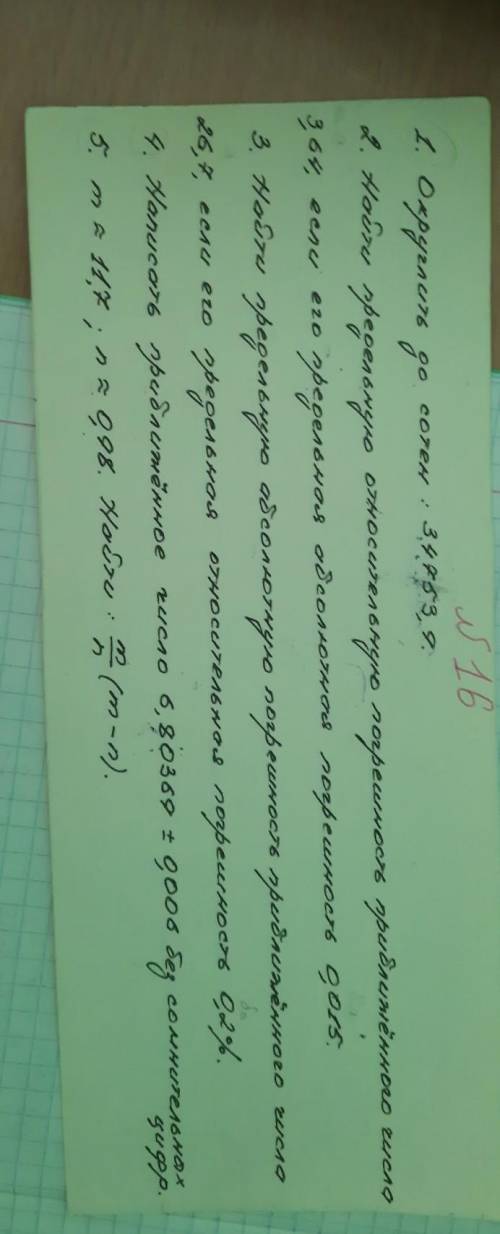 №16
1. Округлить до сотен: 34753,9.
2. Найти предельную относительную погрешность приближённого число
3,64, если его предельная абсолютная погрешность 0,015.
3. Найти предельную абсолютную погрешность приближённого число
26,7, если его предельная относительная погрешность 0,2%.
4. Написать приближённое число 6,80369 ± 0,006 без сомнительных
цифр.
5. m ≈ 11,7; n ≈ 0,98. Найти: m/n (m-n).